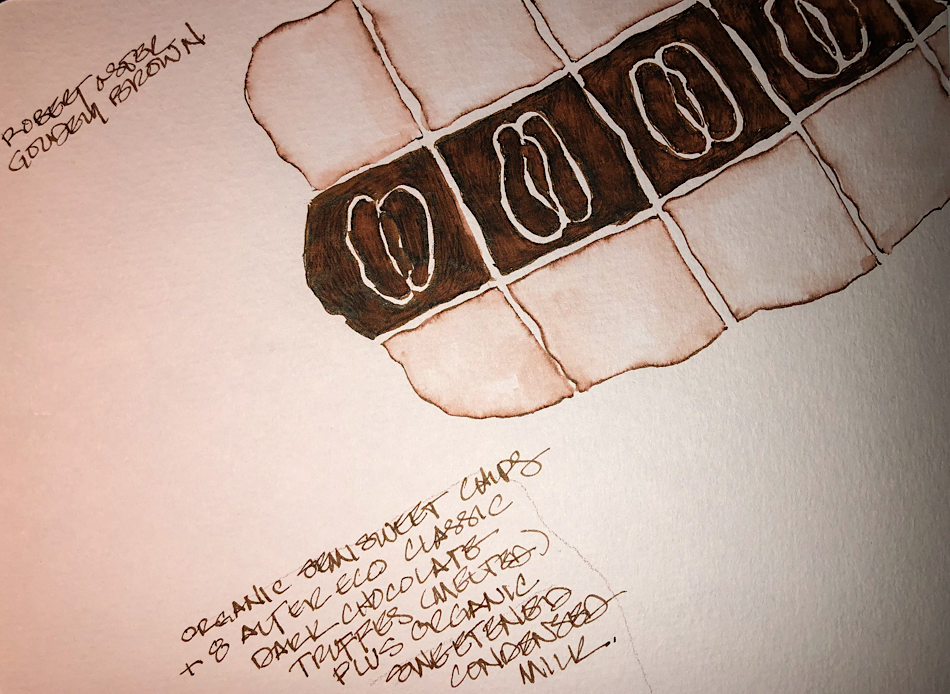 ROBERT OSTER
GOLDEN BROWN
ORGANIC SEMISWEET CHIPS
+ 8 ALTER ECO CLASSIC
DARK CHOCOLATE
TRUFFLES (MELTED)
PLUS ORGANIC
SWEETENED
CONDENSED
MILK.